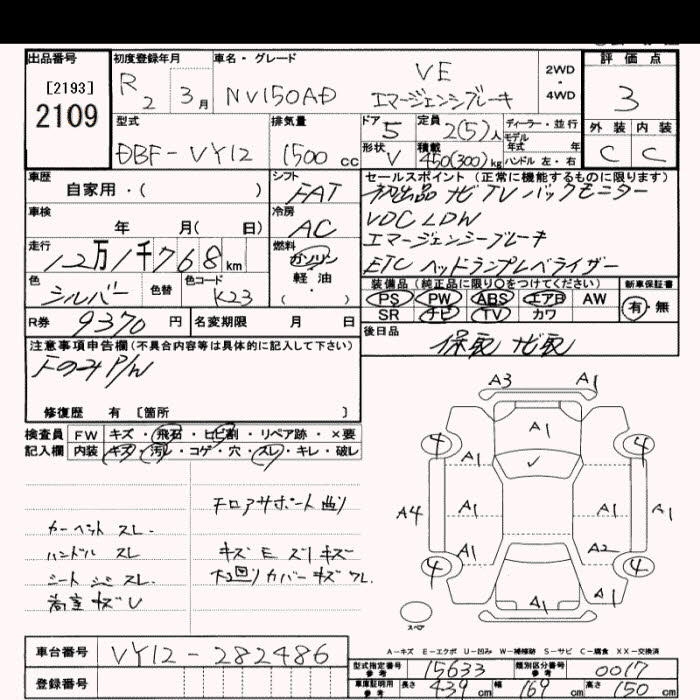 出品番号 初度登録年月 車名・グレード 評価点
[2193] R2 3月 NV150AD VE 2WD・4WD 3
2109 エマージェンシブレーキ
型式 排気量 ドア 5 定員 2(5)人 ディーラー・並行 外装 内装
DBF-VY12 1500cc 形状 V 積載 450(300)kg モデル年式 年 ハンドル 左・右 C C
車歴 自家用・( ) シフト FAT
セールスポイント(正常に機能するものに限ります)
初出品 ナビ TV バックモニター
VDC LDW
エマージェンシーブレーキ
ETC ヘッドランプレベライザー
車検 年 月( 日) 冷房 AC
走行 12万1千768km 燃料 ガソリン 軽油 ( ・ )
色 シルバー 色替 色コード K23
装備品(純正品に限り○をつけてください) 新車保証書
PS PW ABS エアB AW 有・無
SR ナビ TV カワ
R券 9370円 名変期限 月 日
後日品 保取 ナビ取
注意事項申告欄(不具合内容等は具体的に記入して下さい)
FのみP/W
修復歴 有 [箇所 ]
検査員記入欄 FW キズ・飛石・ヒビ割・リペア跡・×要
内装 キズ・汚レ・コゲ・穴・スレ・キレ・破レ
カーペット スレ
ハンドル スレ
シート シミ スレ
荷室 キズU
F コアサポート 曲り
キズE ズリキズ
下回り カバー キズ ワレ
A3 A1
A1
4 4
A1 A1
A4 A1
A1 A2
4 4
A1 A1
スペア
A-キズ E-エクボ U-凹み W-補修跡 S-サビ C-腐食 XX-交換済
車台番号 VY12-282486
型式指定番号 参考 15633 類別区分番号 参考 0017
登録番号
車庫証明用 参考 長さ 439cm 幅 169cm 高さ 150cm